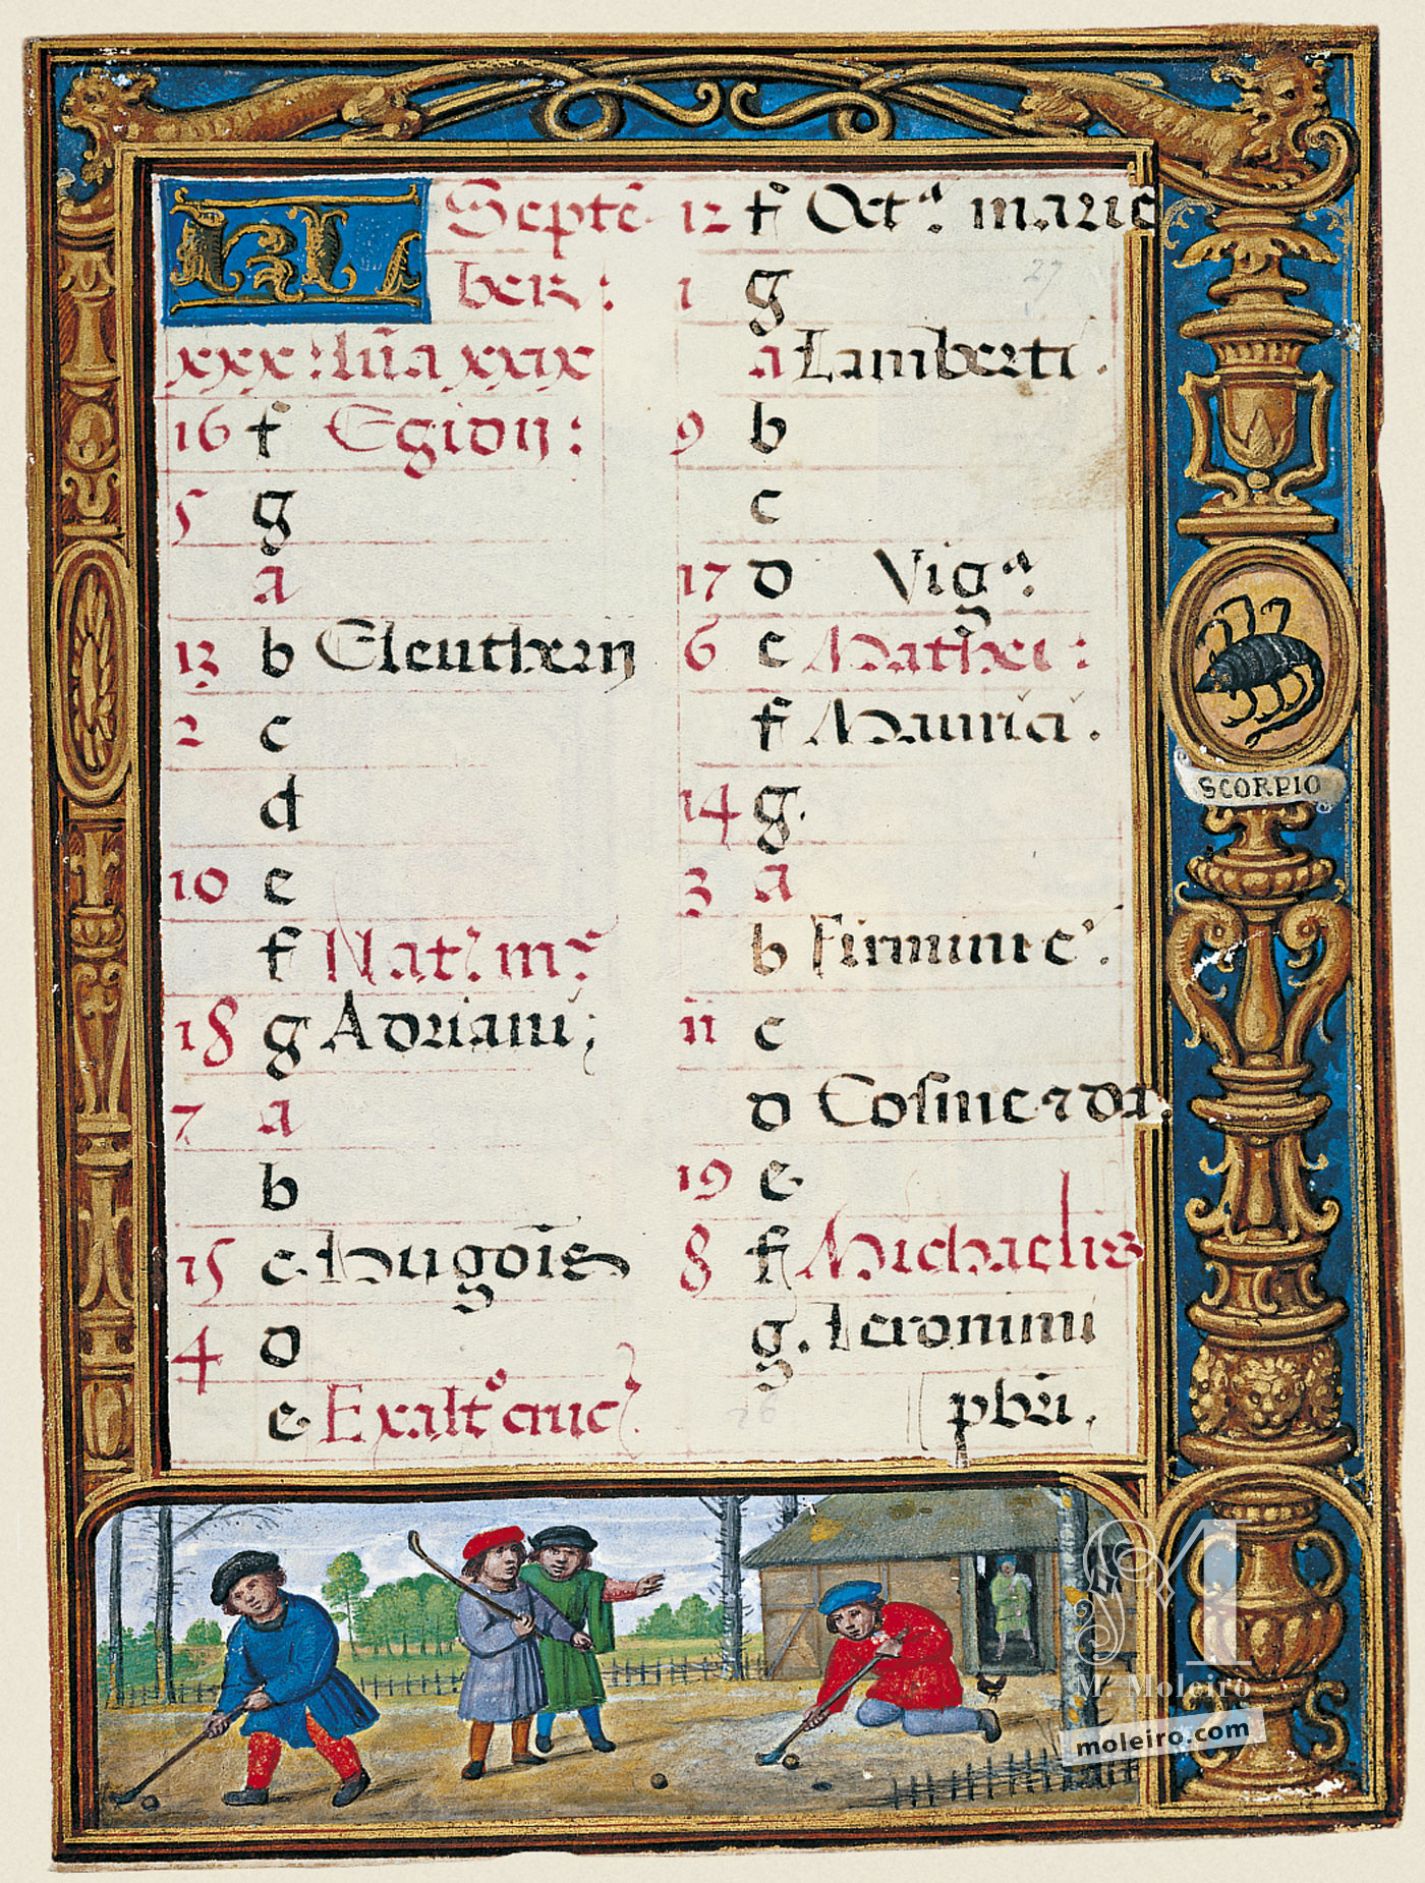 KL
Septē
ber :
xxx : lūa xxix
16 f Egidij :
5 g
a
13 b Eleutherij
2 c
d
10 e
f Nat. m.
18 g Adriani ;
7 a
b
15 c Hugōis
4 d
e Exalt° cruc
12 f Octª. marie
1 g
a Lamberti .
9 b
c
17 d Vigª.
6 e Mathei :
f Mauricii .
14 g .
3 a
b Firmini e .
11 c
d Cosme ⁊ da .
19 e
8 f Michaelis
g . Ieronimi
pbri .
27
26
SCORPIO
M
M. Moleiro
moleiro.com
S